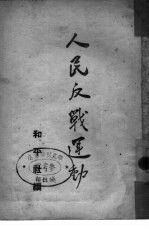 人民反戰運動
和平社編